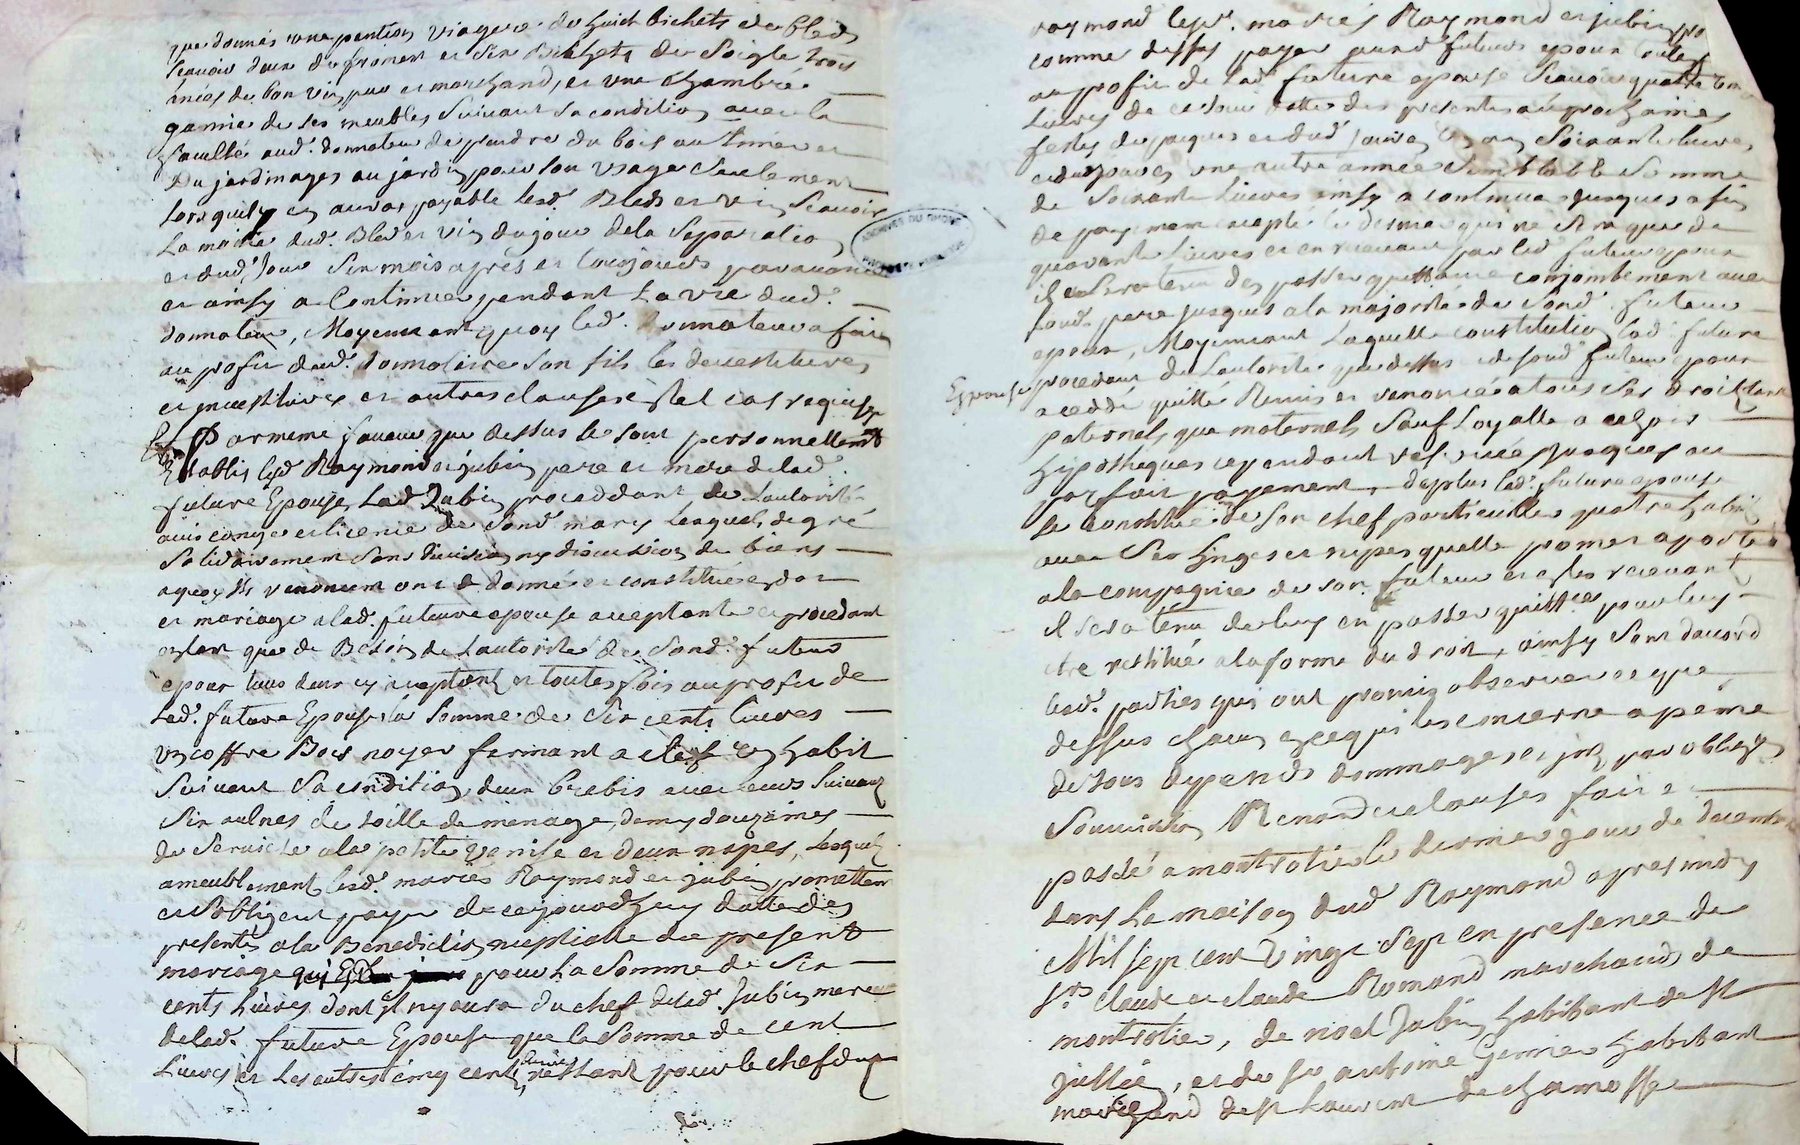 que donnés une pention viagere de huict bichets de bled
scavoir deux de froment et six bichets de soigle trois
anées de bon vin pur et marchand, et une chambre
garnie de ses meubles suivant sa condition avec la
faculté aud. donnateur de prendre du bois au
du jardinages au jardin pour son usage seulement
lorsquil en aura, payable lesd. bleds et vin scavoir
la moitié dud. bled et vin du jour de la separation
et dud. jour six mois apres et toujours par avance
et ainsy a continuer pendant la vie dud.
donnateur, Moyennant quoy led. donnateur a fait
au profit dud. donnataire son fils les devestitures
investitures et autres clauses a tel cas requises
Par meme faveur que dessus se sont personnellement
Etablis lesd. Raymond et jubin pere et mere de lad.
future Epouse, Lad. Jubin proceddant de l'autorité
avis congé et licence de sond. mary lesquels de gré
solidairement sans division ny discussion de biens
a quoy ils renoncent ont donné et constitué en dot
et mariage a lad. future epouse acceptante et procedant
de l'autorité de sond. futur
epoux tous deux acceptant et toutes fois au profit de
Lad. future Epouse la somme de six cents livres
un coffre Bois noyer fermant a clef un habit
suivant sa condition, deux brebis avec leurs suivant
six aulnes de toille de menage, demy douzaines
de service a la petite venise et deux napes, lesquels
ameublement lesd. mariés Raymond et jubin promettent
et s'obligent payer de ce jourdhuy datte des
presentes a la Benediction nuptialle du present
mariage pour la somme de six
cents livres dont il n'y aura du chef de lad. Jubin mere
de lad. future Epouse que la somme de cent
Livres et les autres cinq cents restant pour le chef dud.
raymond les mariés Raymond et jubin
comme dessus payer aud. futur epoux
au profit de lad. future epouse scavoir quatre cent
Livres de ce jour datte des presentes aux prochaines
festes de paques et dud. jour en un an soixante livres
une autre année semblable somme
de soixante livres ainsy a continuer jusques a fin
de payement excepté le dernier qui ne sera que de
quarante livres et en recevant par led. futur epoux
il sera tenu d'en passer quittance conjointement avec
sond. pere jusques a la majorité de sond. futur
epoux, Moyennant laquelle constitution lad. future
Epouse procedant de l'autorité que dessus de sond. futur epoux
a ceddé quitté Remis et renoncé a tous ses droits tant
paternels que maternels sauf loyalle
hypotheques cependant reservée jusques au
parfait payement, deplus lad. future epouse
se constitue de son chef particulier quatre habits
avec ses linges et nipes quelle promet aporter
a la compagnie de son futur et es les recevant
il sera tenu de luy en passer quittce pour luy
etre restitué a la forme du droit, ainsy sont daccord
lesd. parties qui ont promis observer ce que
dessus chacun en ce qui les concerne a peine
de tous depends dommages et par obligation
soumission Renond. et clauses faict
passé a montrotier le dernier jour de decembre
dans la maison dud. Raymond apres midy
Mil sept cent vingt sept en presence de
srs Claude et claude Romand marchands de
montrotier, de noel Jubin habitant de st
jullien, et de sr antoine habitant
marchand de st Laurent de chamosset